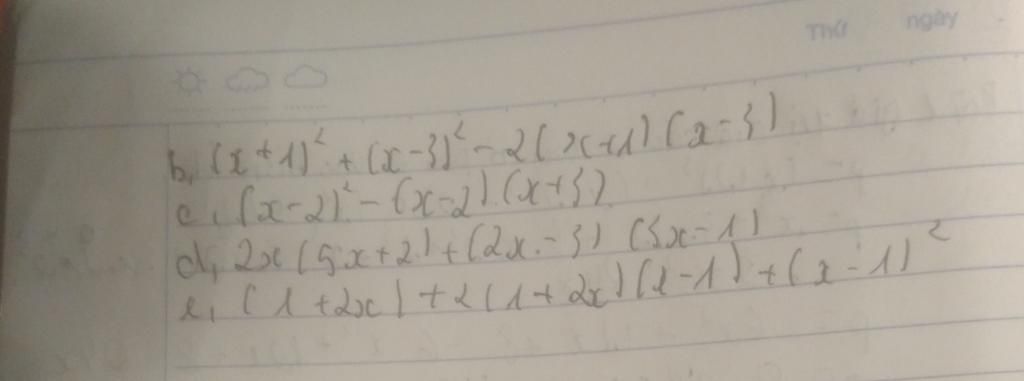 Thứ ngày
b, (x+1)² + (x-3)² - 2(x+1)(x-3)
c, (x-2)² - (x-2)(x+3)
d, 2x(5x+2) + (2x-3)(3x-1)
e, (1+2x) + 2(1+2x)(x-1) + (x-1)²